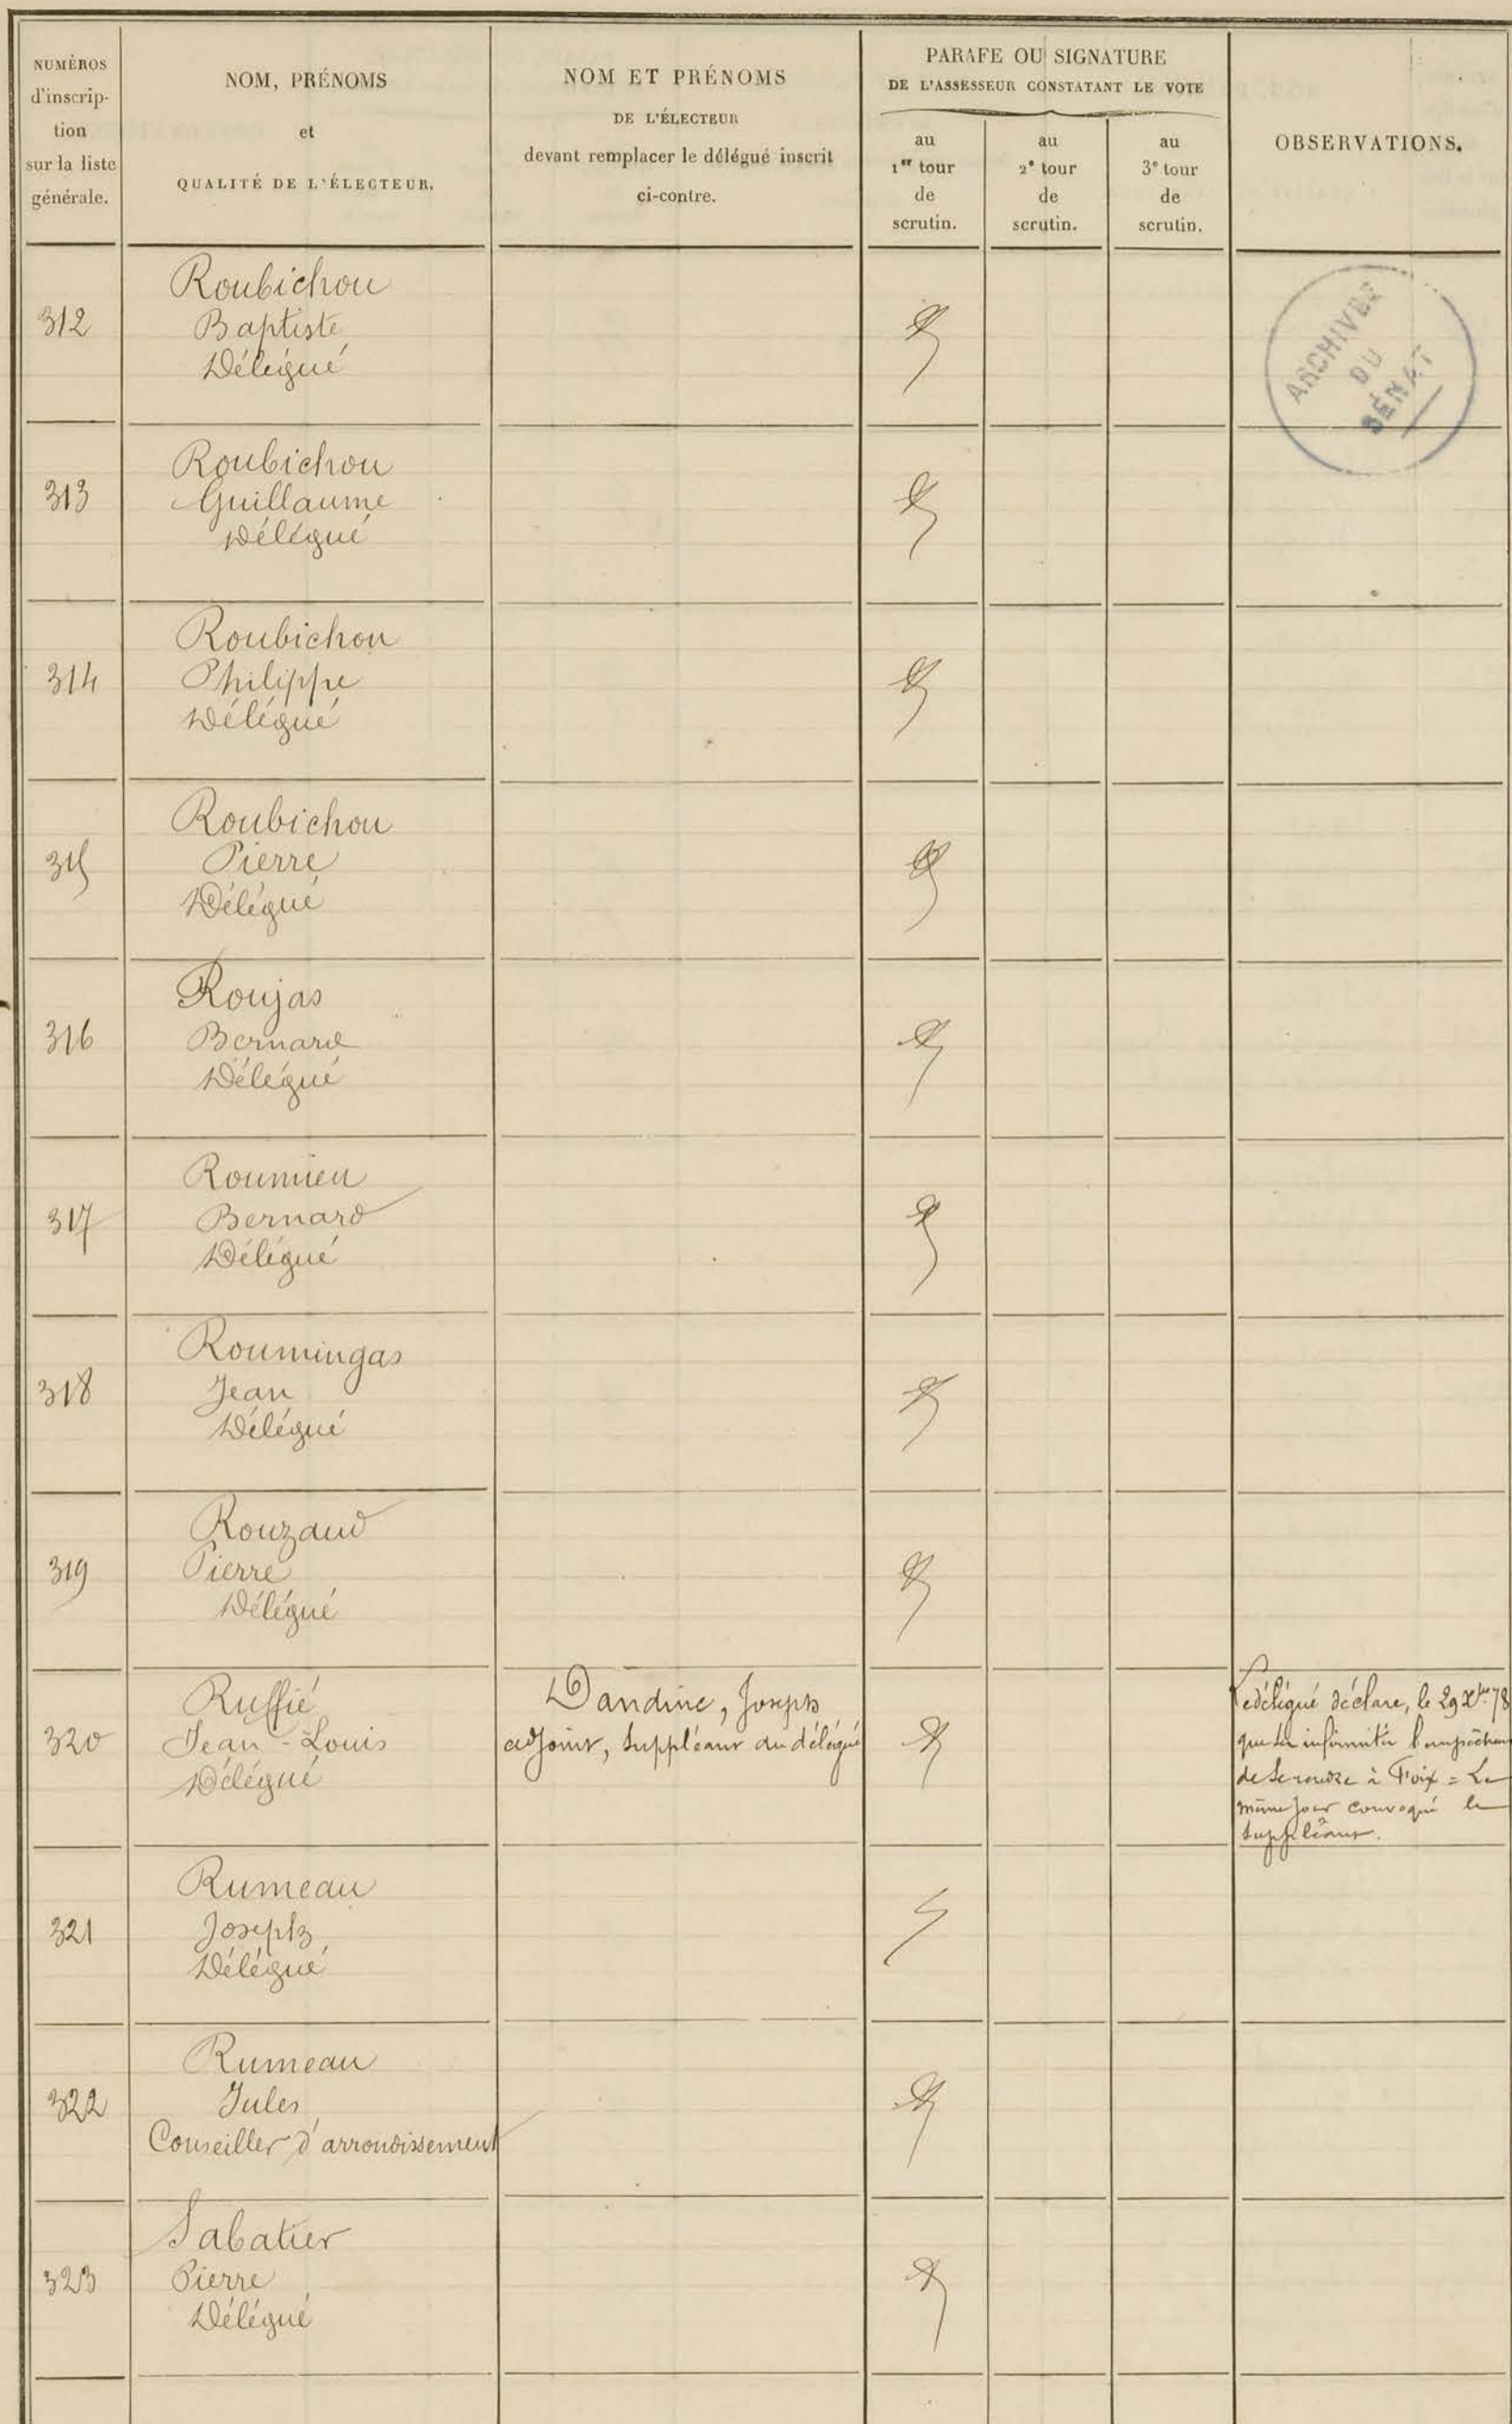 NUMÉROS
d'inscrip-
tion
sur la liste
générale.
NOM, PRÉNOMS
et
QUALITÉ DE L'ÉLECTEUR.
NOM ET PRÉNOMS
DE L'ÉLECTEUR
devant remplacer le délégué inscrit
ci-contre.
PARAFE OU SIGNATURE
DE L'ASSESSEUR CONSTATANT LE VOTE
au
1er tour
de
scrutin.
au
2e tour
de
scrutin.
au
3e tour
de
scrutin.
OBSERVATIONS.
ARCHIVES
DU
SÉNAT
Roubichou
312
Baptiste
Délégué
Roubichou
313
Guillaume
Délégué
Roubichou
314
Philippe
Délégué
Roubichou
315
Pierre
Délégué
Roujas
316
Bernard
Délégué
Roumieu
317
Bernard
Délégué
Roumingas
318
Jean
Délégué
Rouzaud
319
Pierre
Délégué
Ruffié
320
Jean-Louis
Délégué
Dandine, Joseph
adjoint, suppléant du délégué
Le délégué déclare, le 29 Xbre 78
que ses infirmités l'empêchent
de se rendre à Foix = Le
même jour convoqué le
suppléant.
Rumeau
321
Joseph
Délégué
Rumeau
322
Jules
Conseiller d'arrondissement
Sabatier
323
Pierre
Délégué